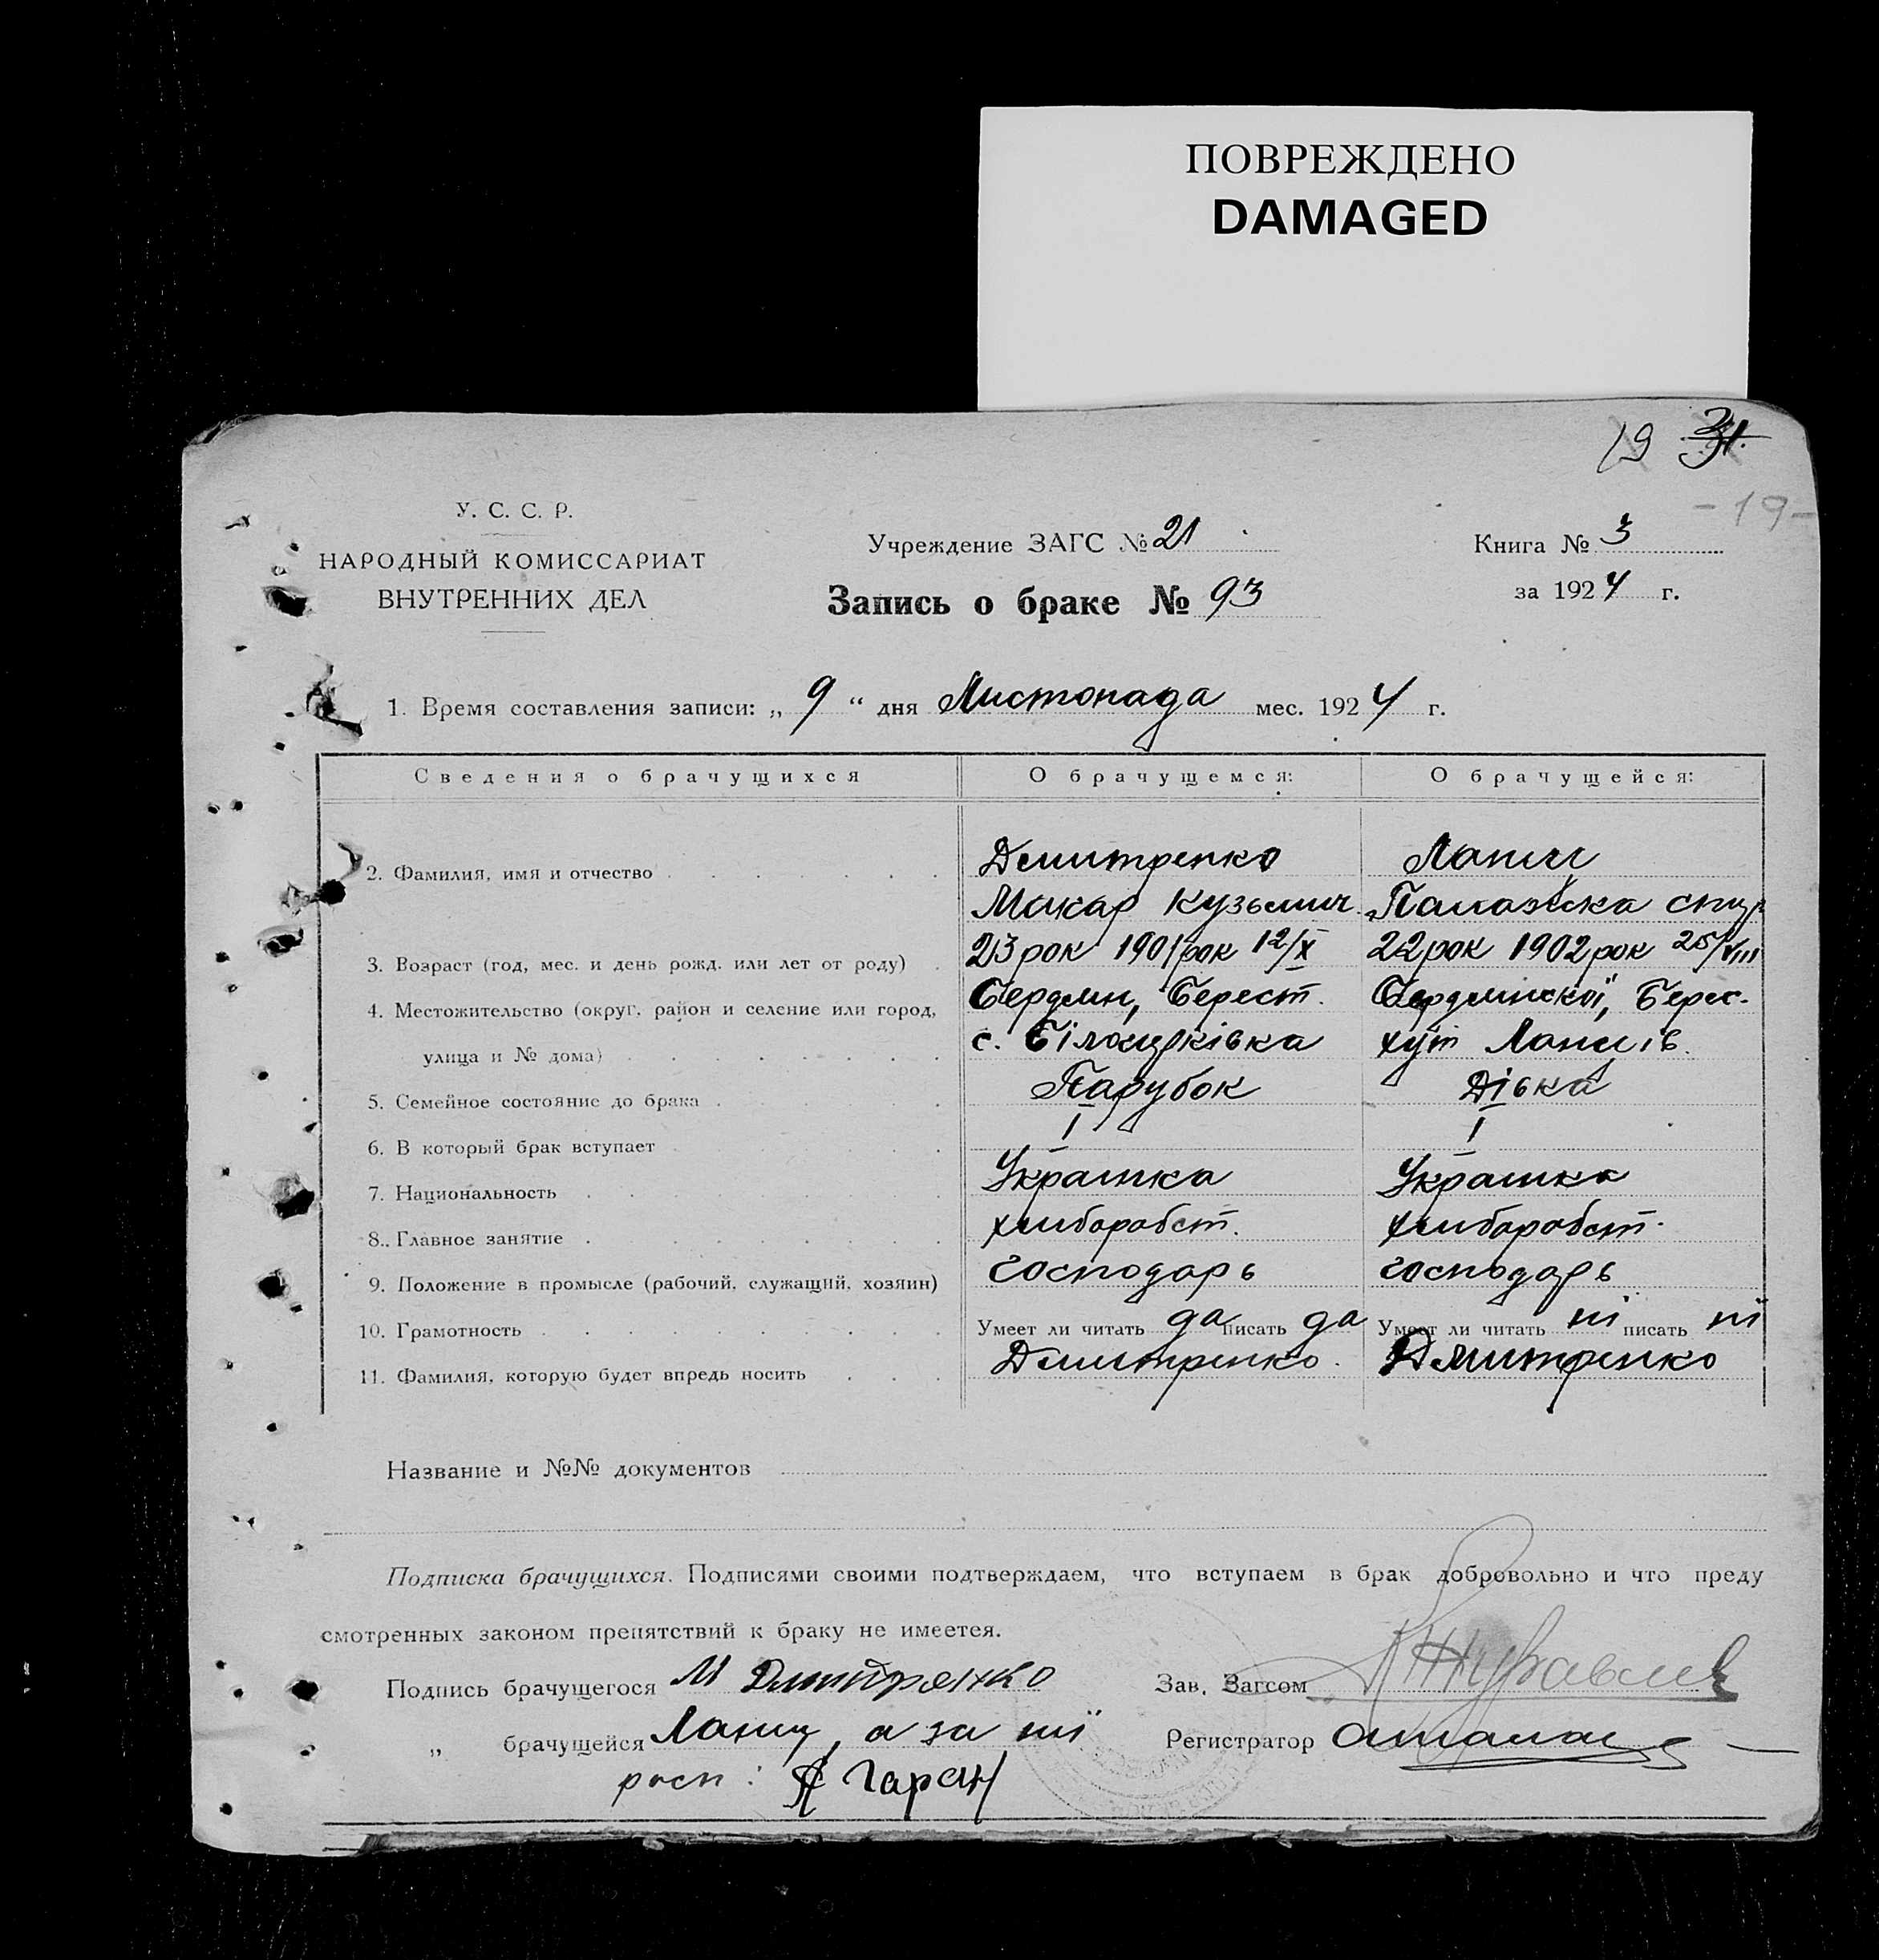 ПОВРЕЖДЕНО
DAMAGED
19 31.
-19-
У. С. С. Р.
НАРОДНЫЙ КОМИССАРИАТ
ВНУТРЕННИХ ДЕЛ
Учреждение ЗАГС № 21
Запись о браке № 93
Книга № 3
за 1924 г.
1. Время составления записи: „ 9 “ дня Листопада мес. 1924 г.
Сведения о брачущихся О брачущемся: О брачущейся:
2. Фамилия, имя и отчество Дмитренко
Макар Кузьмич
3. Возраст (год, мес. и день рожд. или лет от роду) 23 рок 1901 рок 12/X 22 рок 1902 рок 25/VIII
4. Местожительство (округ, район и селение или город, Бердян, Берест. Бердянської, Берес.
улица и № дома) с. Білоцерківка хут
5. Семейное состояние до брака Парубок Дівка
6. В который брак вступает I I
7. Национальность Украинка Украинка
8. Главное занятие хлиборобст. хлиборобст.
9. Положение в промысле (рабочий, служащий, хозяин) господарь господарь
10. Грамотность Умеет ли читать да писать да Умеет ли читать ні писать ні
11. Фамилия, которую будет впредь носить Дмитренко. Дмитренко
Название и №№ документов
Подписка брачущихся. Подписями своими подтверждаем, что вступаем в брак добровольно и что преду
смотренных законом препятствий к браку не имеется.
Подпись брачущегося М Дмитренко Зав. Загсом
„ брачущейся а за Регистратор
росп: